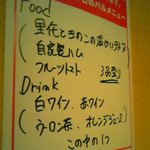 本日のバルメニュー
Food
里芋ときのこの温かいサラダ
自家製ハム
フルーツトマト 3品盛り
Drink
白ワイン、赤ワイン
ウーロン茶、オレンジジュース
この中の1つ